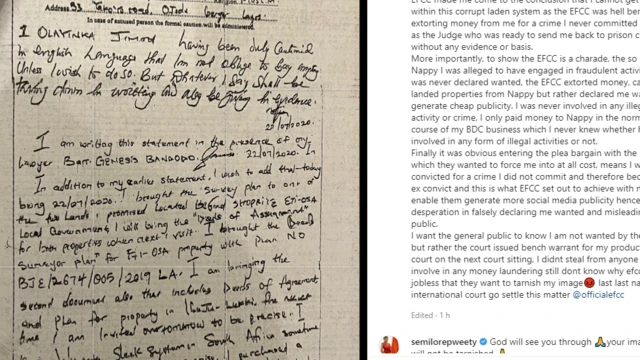 Address 33,
In case of accused person the formal caution will be administered
I OLAYINKA JIMOH having been duly Cautioned
in English Language that I'm not obliged to say anything
Unless I wish to do so. But whatever I say shall be
taking down in writing and also be given in evidence.
22/07/2020.
I am writing this statement in the presence of my
lawyer Barr. GENESIS 22/07/2020. In
In addition to my earlier statement I wish to add that today
being 22/07/2020 I brought the survey plan to one of
the two lands I promised located behind SHOPRITE ETI-OSA
Local Government, I will bring the "Deeds of Assignment"
for both properties when next I visit. I brought the
Surveyor plan for Eti-OSA property with Plan NO
BJE/2674/005/2019 LA. I am bringing the
second document also that includes Deeds of Agreement
and plan for property in the next
time I am invited tomorrow to be precise. I
South Africa sometime
I purchased a
EFCC made me come to the conclusion that I cannot get
within this corrupt laden system as the EFCC was hell ben
extorting money from me for a crime I never committed
as the Judge who was ready to send me back to prison c
without any evidence or basis.
More importantly, to show the EFCC is a charade, the so
Nappy I was alleged to have engaged in fraudulent activi
was never declared wanted, the EFCC extorted money, ca
landed properties from Nappy but rather declared me wa
generate cheap publicity. I was never involved in any illeg
activity or crime. I only paid money to Nappy in the norm
course of my BDC business which I never knew whether h
involved in any form of illegal activities or not.
Finally it was obvious entering the plea bargain with the
which they wanted to force me into at all cost, means I w
convicted for a crime I did not commit and therefore bec
ex convict and this is what EFCC set out to achieve with m
enable them generate more social media publicity hence
desperation in falsely declaring me wanted and mislead
public.
I want the general public to know I am not wanted by the
but rather the court issued bench warrant for my produc
court on the next court sitting. I didnt steal from anyone
involve in any money laundering still dont know why efcc
jobless that they want to tarnish my image😡 last last na
international court go settle this matter @officialefcc
Edited · 1 h
semilorepweety God will see you through 🙏 your ima
will not be tarnished 🙏